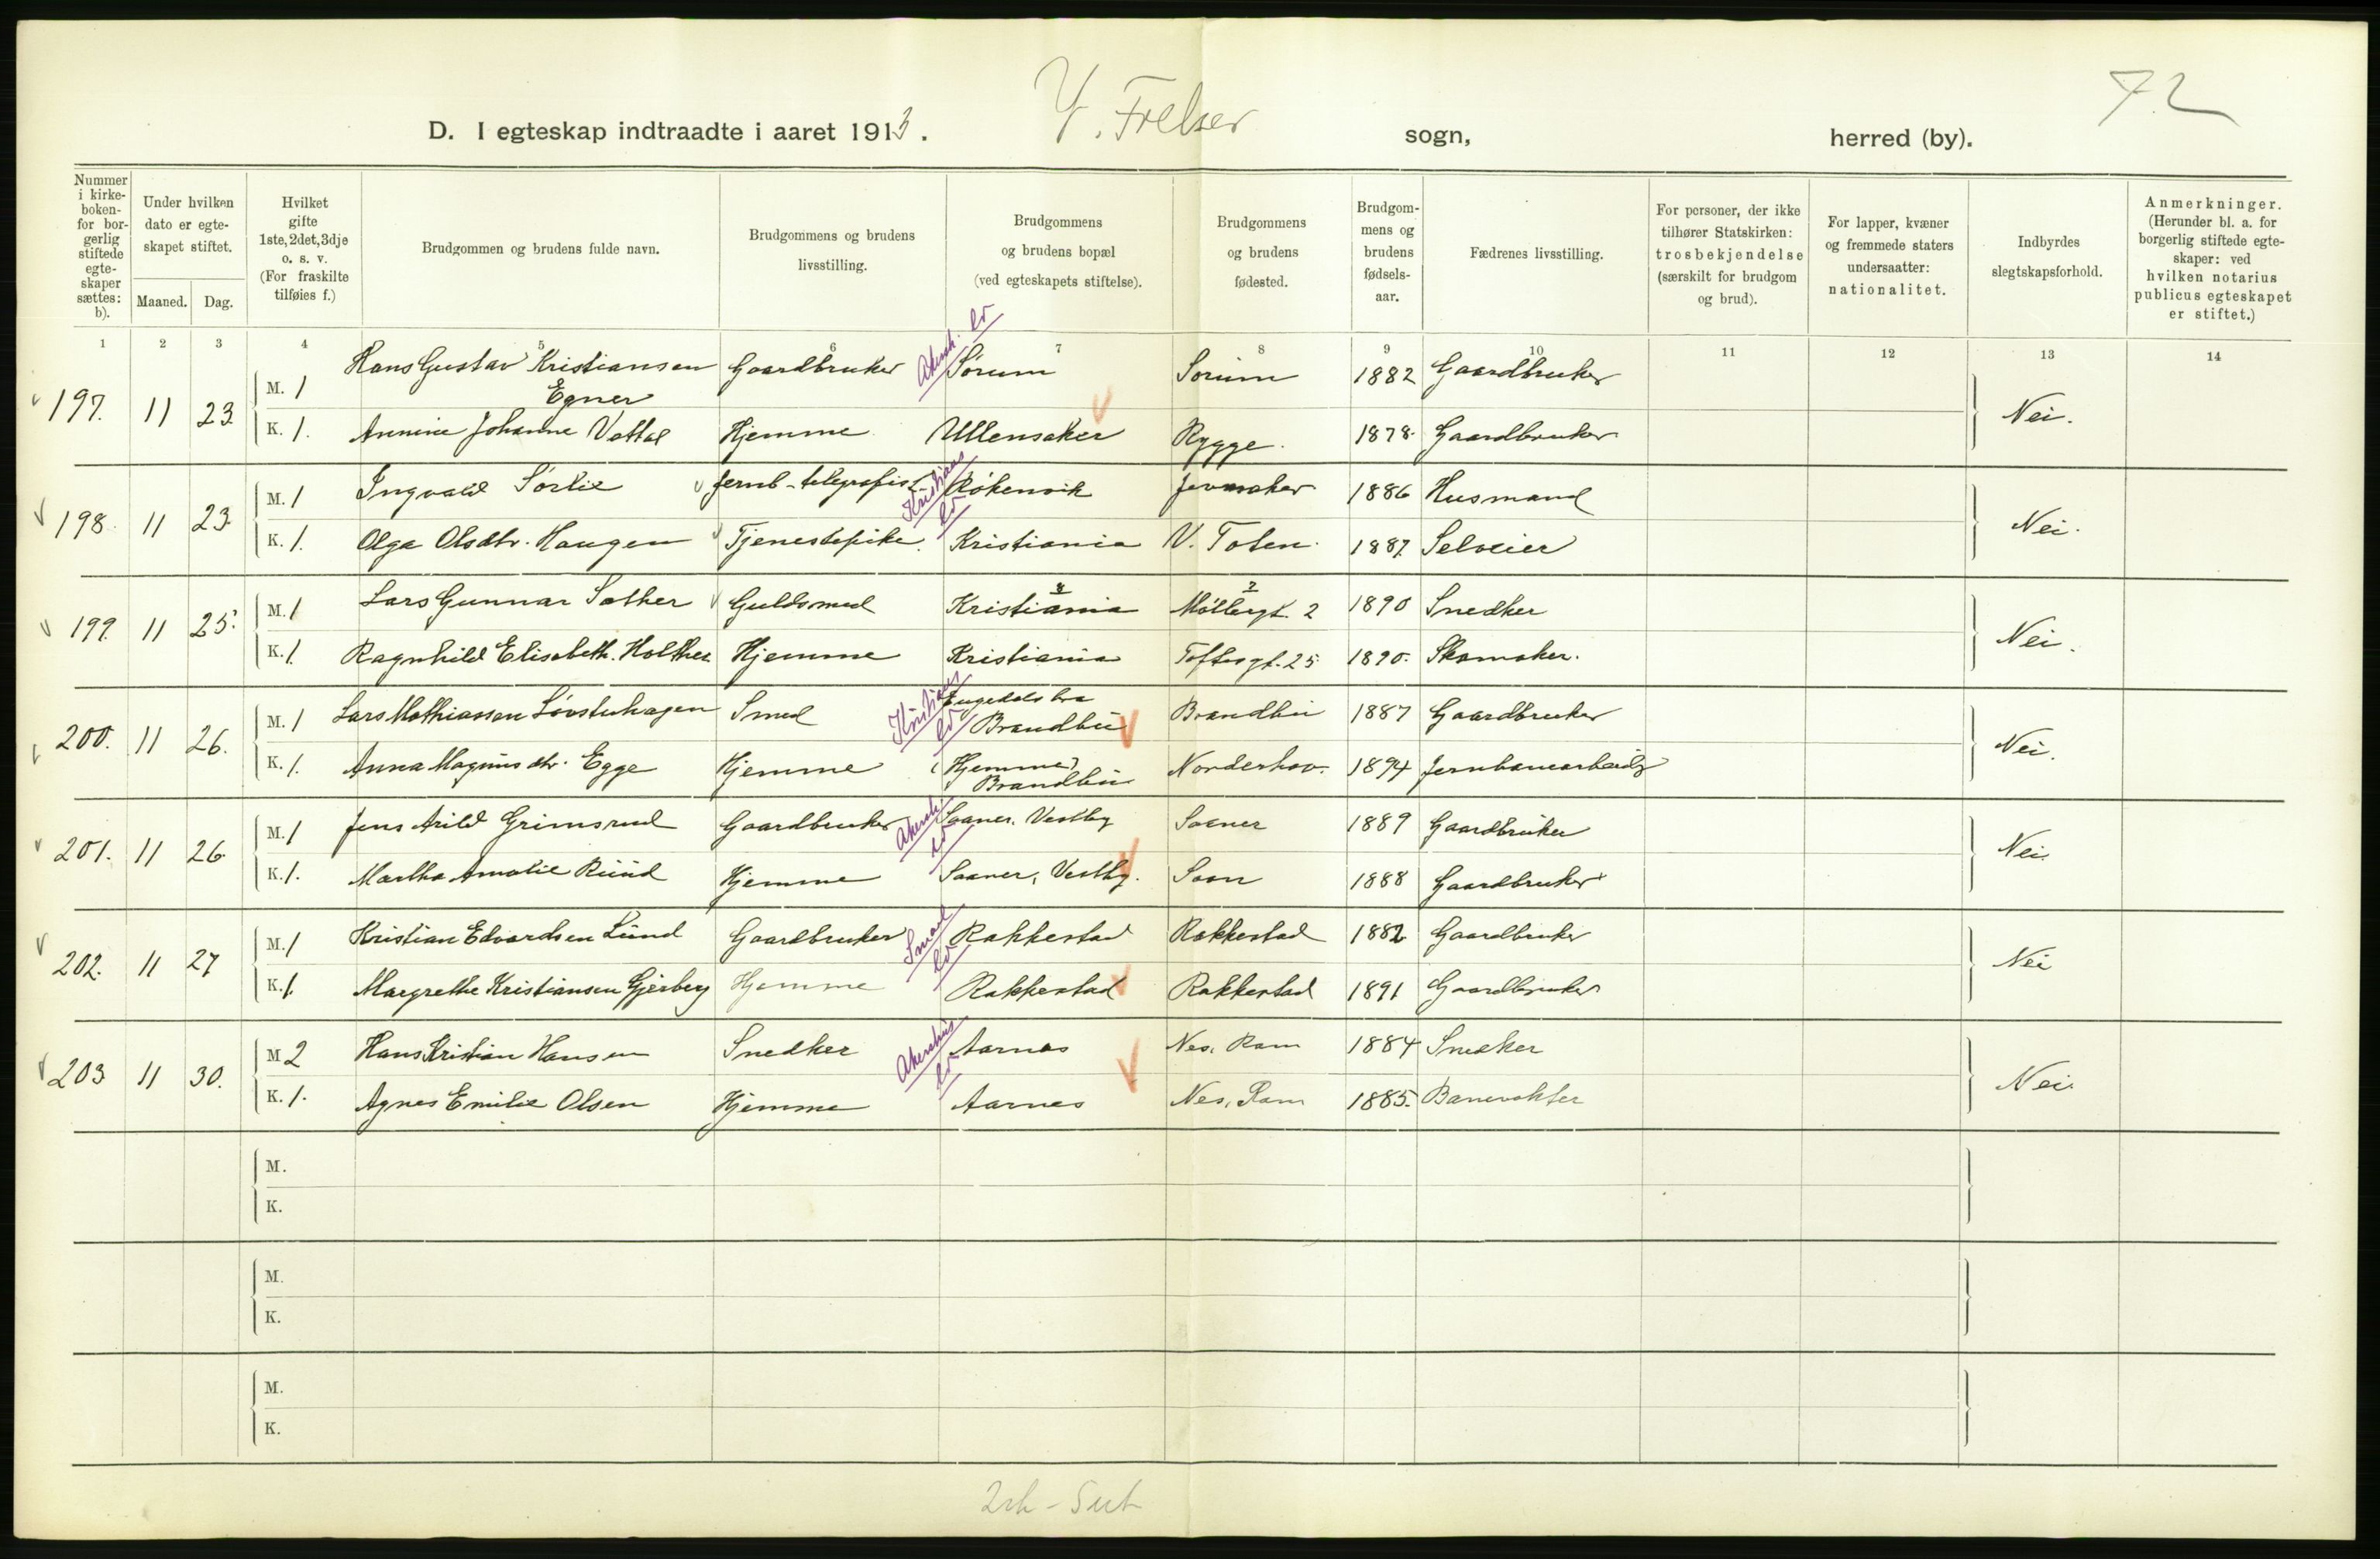 72
D. I egteskap indtraadte i aaret 1913. V. Frelser sogn, herred (by).
Nummer i kirkeboken- for borgerlig stiftede egteskaper sættes: b).
Under hvilken dato er egteskapet stiftet.
Maaned. Dag.
Hvilket gifte 1ste, 2det, 3dje o. s. v. (For fraskilte tilføies f.)
Brudgommen og brudens fulde navn.
Brudgommens og brudens livsstilling.
Brudgommens og brudens bopæl (ved egteskapets stiftelse).
Brudgommens og brudens fødested.
Brudgommens og brudens fødselsaar.
Fædrenes livsstilling.
For personer, der ikke tilhører Statskirken: trosbekjendelse (særskilt for brudgom og brud).
For lapper, kvæner og fremmede staters undersaatter: nationalitet.
Indbyrdes slegtskapsforhold.
Anmerkninger. (Herunder bl. a. for borgerlig stiftede egteskaper: ved hvilken notarius publicus egteskapet er stiftet.)
1 2 3 4 5 6 7 8 9 10 11 12 13 14
197. 11 23 M. 1 Hans Gustav Kristiansen Egner Gaardbruker Akersh. Sørum Sørum 1882 Gaardbruker Nei.
K. 1. Annine Johanne Vettal Hjemme Ullensaker Rygge. 1878. Gaardbruker
198. 11 23. M. 1 Ingvald Sørlie Jernb-telegrafist Kristians Røkenvik Jevnaker 1886 Husmand Nei.
K. 1. Olga Olsdtr. Haugen Tjenestepike. Kristiania V. Toten. 1887. Selveier
199. 11 25. M. 1 Lars Gunnar Sather Guldsmed Kristiania Møllergt. 2 1890 Snedker Nei.
K. 1. Ragnhild Elisabeth. Holther Hjemme Kristiania Toftesgt. 25 1890. Skomaker.
200. 11 26. M. 1 Lars Mathiassen Løvstuhagen Smed Kristians Brandbu Brandbu 1887 Gaardbruker Nei.
K. 1. Anna Magnusdtr. Egge Hjemme (Hjemme) Brandbu Norderhov. 1894 Jernbanearbeider
201. 11 26. M. 1 Jens Arild Grimsrud Gaardbruker Akersh. Saaner. Vestby Saaner 1889 Gaardbruker Nei.
K. 1. Martha Amalie Ruud Hjemme Saaner, Vestby. Soon 1888 Gaardbruker
202. 11 27 M. 1 Kristian Edvardsen Lund Gaardbruker Smaal Rakkestad Rakkestad 1882 Gaardbruker Nei
K. 1. Margrethe Kristiansen Gjerberg Hjemme Rakkestad Rakkestad 1891 Gaardbruker
203 11 30. M 2 Hans Kristian Hansen Snedker Akershus Aarnes Nes, Rom 1884 Snedker Nei.
K. 1. Agnes Emilie Olsen Hjemme Aarnes Nes, Rom 1885. Banevokter
M.
K.
M.
K.
M.
K.